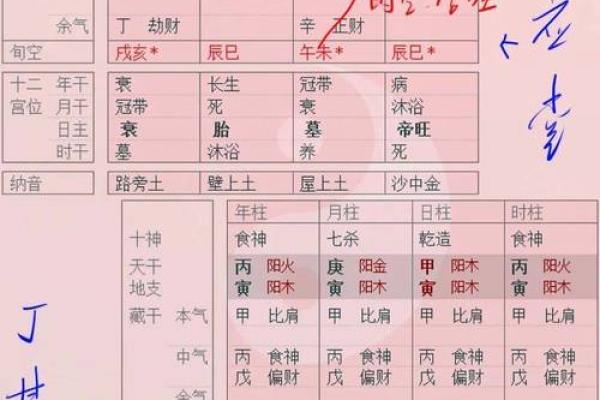 余气 丁 劫财 辛 正财
旬空 戌亥* 辰巳 午未* 辰巳*
十二 年干 衰 长生 冠带 病
宫位 月干 冠带 死 衰 沐浴
日主 衰 胎 墓 帝旺
时干 墓 沐浴 养 死
纳音 路旁土 壁上土 屋上土 沙中金
年柱 月柱 日柱 时柱
十神 食神 七杀 乾造 食神
天干 丙 阳火 庚 阳金 甲 阳木 丙 阳火
地支 寅 阳木 寅 阳木 寅 阳木 寅 阳木
藏干 本气 甲 比肩 甲 比肩 甲 比肩 甲 比肩
中气 丙 食神 丙 食神 丙 食神 丙 食神
戊 偏财 戊 偏财 戊 偏财 戊 偏财
余气
丁